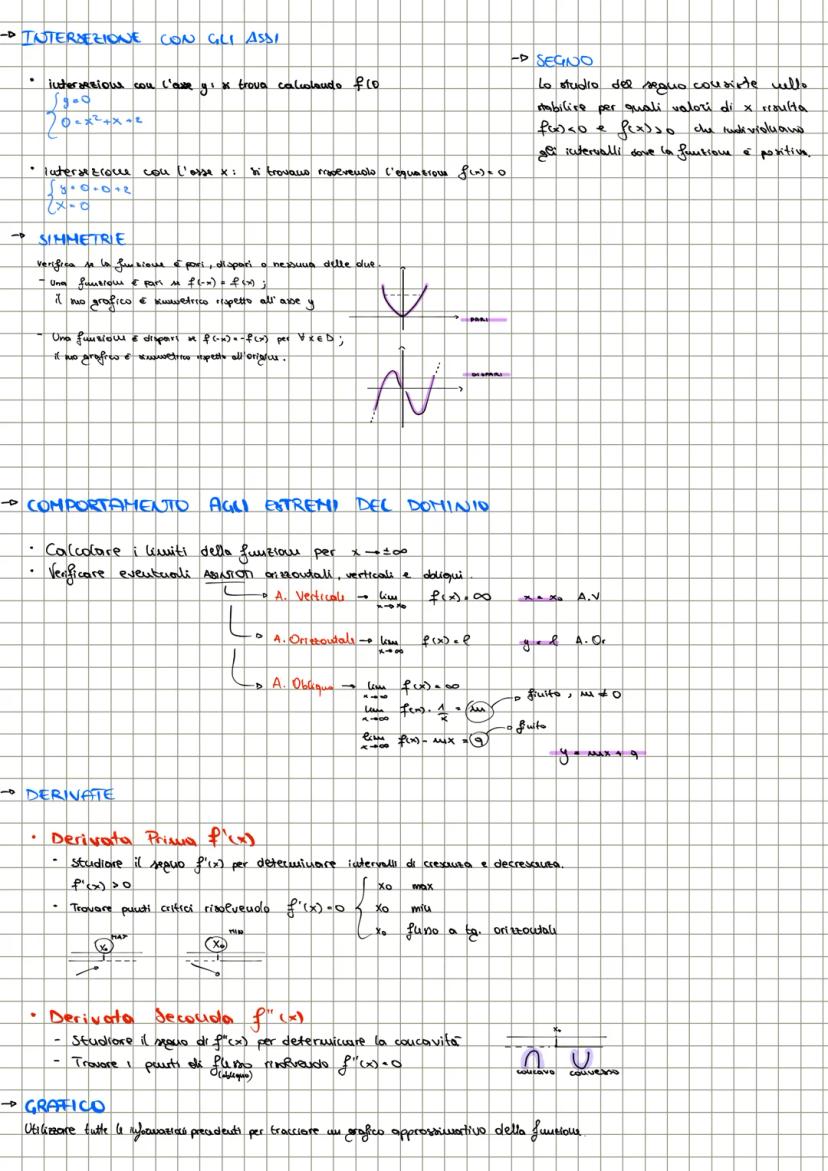 → INTERSEZIONE CON GLI ASSI
• intersezione con l'asse y: si trova calcolando f(0
{ y=0
0=x²+x+2
• intersezione con l'asse x: si trovano risolvendo l'equazione f(x)=0
{ y=0+0+2
x=0
→ SEGNO
Lo studio del segno consiste nello
stabilire per quali valori di x risulta
f(x)<0 e f(x)>0 che individuano
gli intervalli dove la funzione è positiva.
→ SIMMETRIE
Verifica se la funzione è pari, dispari o nessuna delle due.
- Una funzione è pari se f(-x)=f(x);
il suo grafico è simmetrico rispetto all'asse y
PARI
- Una funzione è dispari se f(-x)=-f(x) per ∀x∈D;
il suo grafico è simmetrico rispetto all'origine.
DISPARI
→ COMPORTAMENTO AGLI ESTREMI DEL DOMINIO
• Calcolare i limiti della funzione per x→±∞
• Verificare eventuali ASINTOTI orizzontali, verticali e obliqui.
A. Verticale → lim x→x₀ f(x)=∞ x=x₀ A.V
A. Orizzontale → lim x→∞ f(x)=ℓ y=ℓ A.Or
A. Obliquo → lim x→∞ f(x)=∞
lim x→∞ f(x)·1/x = m → finito, m≠0
lim x→∞ f(x)-mx = q → finito
y=mx+q
→ DERIVATE
• Derivata Prima f'(x)
- Studiare il segno f'(x) per determinare intervalli di crescenza e decrescenza.
f'(x)>0
- Trovare punti critici risolvendo f'(x)=0 { x₀ max
x₀ min
x₀ flesso a tg. orizzontale
x₀ MAX
x₀ MIN
• Derivata Seconda f''(x)
- Studiare il segno di f''(x) per determinare la concavità
- Trovare i punti di flesso risolvendo f''(x)=0
(obliquo)
x₀
concavo convesso
→ GRAFICO
Utilizzare tutte le informazioni precedenti per tracciare un grafico approssimativo della funzione.